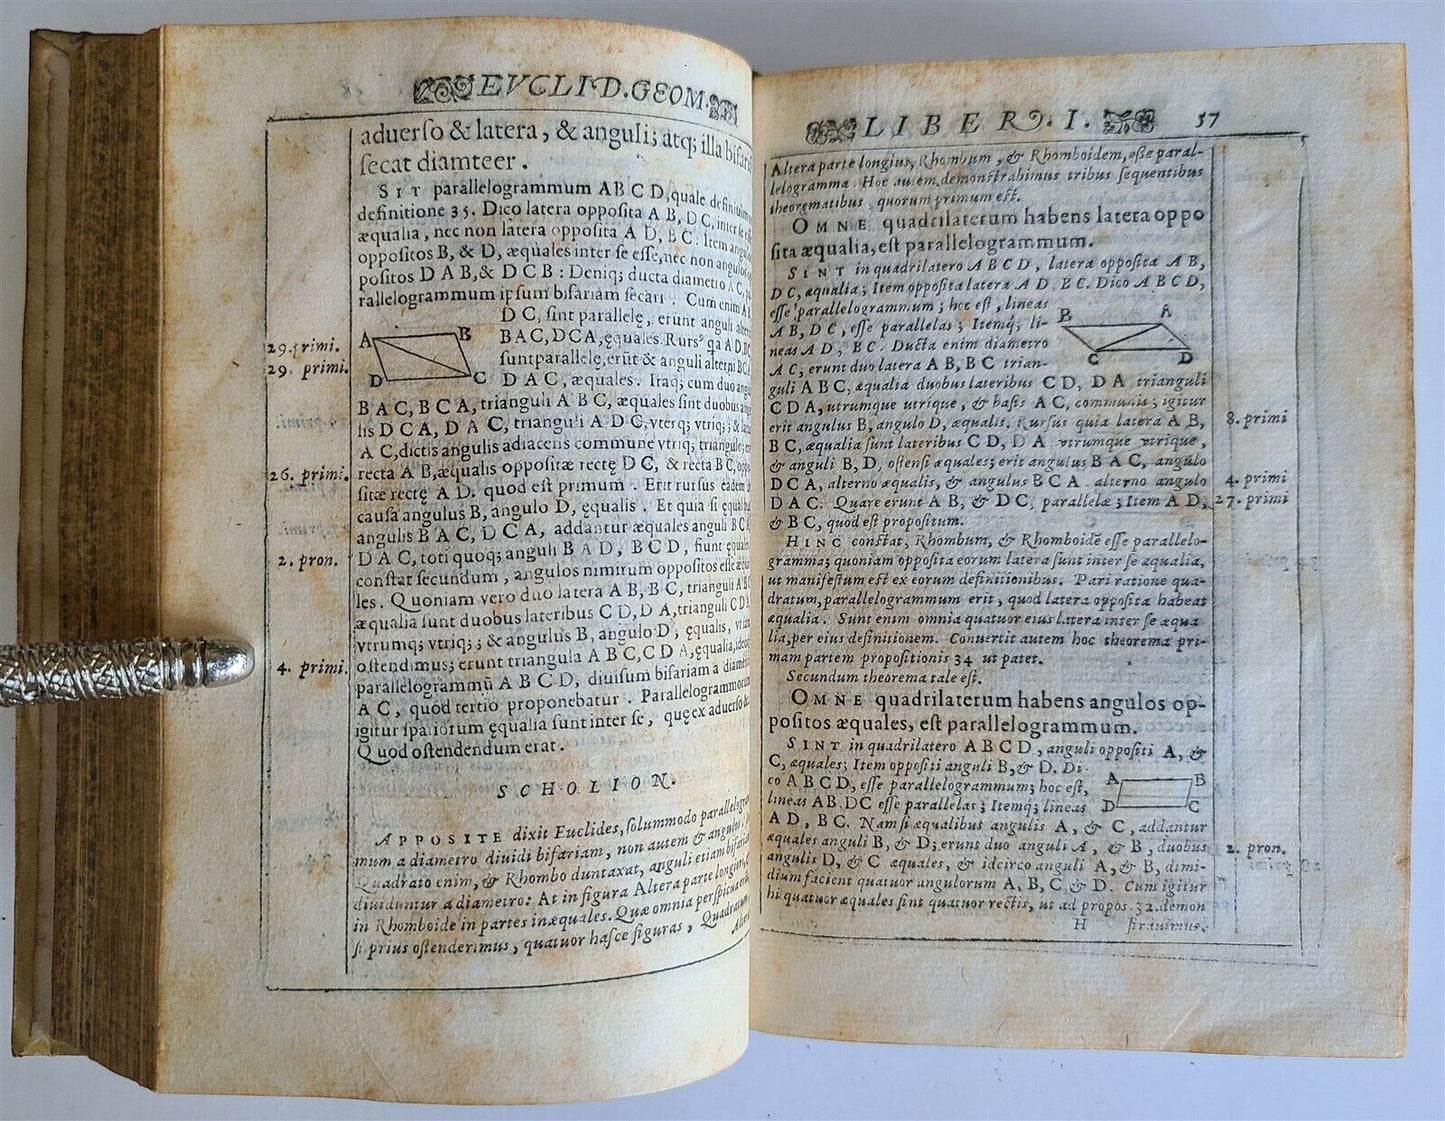 EVCLID. GEOM.
aduerſo & latera, & anguli; atq; illa bifariã
ſecat diamteer.
SIT parallelogrammum ABCD, quale definiuimus
definitione 35. Dico latera oppoſita AB, DC, inter ſe eſſe
æqualia, nec non latera oppoſita AD, BC: Item angulos
oppoſitos B, & D, æquales inter ſe eſſe, nec non angulos
poſitos DAB, & DCB: Deniq; ducta diametro AC,
rallelogrammum ipſum bifariam ſecari. Cum enim AB
DC, ſint parallelę, erunt anguli alterni
29. primi.
BAC, DCA, ęquales. Rurſ⁹ qa AD, BC
ſunt parallelę, erũt & anguli alterni BCA
29. primi.
DAC, æquales. Itaq; cum duo anguli
A B
D C
BAC, BCA, trianguli ABC, æquales ſint duobus angu
lis DCA, DAC, trianguli ADC, vterq; vtriq;; & latus
AC, dictis angulis adiacens commune vtriq; triangulo; erit
26. primi.
recta AB, æqualis oppoſitæ rectę DC, & recta BC, oppo
ſitæ rectę AD. quod eſt primum. Erit rurſus eadem de
cauſa angulus B, angulo D, equalis. Et quia ſi ęqualibus
angulis BAC, DCA, addantur æquales anguli BCA
2. pron.
DAC, toti quoq; anguli BAD, BCD, fiunt ęquales
conſtat ſecundum, angulos nimirum oppoſitos eſſe æqua
les. Quoniam vero duo latera AB, BC, trianguli ABC
æqualia ſunt duobus lateribus CD, DA, trianguli CDA
vtrumq; vtriq;; & angulus B, angulo D, ęqualis, vt iam
4. primi.
oſtendimus; erunt triangula ABC, CDA, ęqualia, ideoq;
parallelogrammũ ABCD, diuiſum bifariam à diametro
AC, quod tertio proponebatur. Parallelogrammorum
igitur ſpatiorum ęqualia ſunt inter ſe, quę ex aduerſo &c.
Quod oſtendendum erat.
SCHOLION.
APPOSITE dixit Euclides, ſolummodo parallelogram
mum a diametro diuidi bifariam, non autem & angulos
Quadrato enim, & Rhombo duntaxat, anguli etiam bifariam
diuiduntur a diametro: At in figura Altera parte longiori, &
in Rhomboide in partes inæquales. Quæ omnia perſpicua erunt
ſi prius oſtenderimus, quatuor haſce figuras, Quadratum,
Altera
LIBER. I. 57
Altera parte longius, Rhombum, & Rhomboidem, eſſe paral-
lelogramma. Hoc autem demonſtrabimus tribus ſequentibus
theorematibus, quorum primum eſt.
OMNE quadrilaterum habens latera oppo
ſita æqualia, eſt parallelogrammum.
SINT in quadrilatero ABCD, latera oppoſita AB,
DC, æqualia; Item oppoſita latera AD, BC. Dico ABCD,
eſſe parallelogrammum; hoc eſt, lineas
AB, DC, eſſe parallelas; Itemq́; li-
neas AD, BC. Ducta enim diametro
AC, erunt duo latera AB, BC trian-
B A
C D
guli ABC, æqualia duobus lateribus CD, DA trianguli
CDA, utrumque utrique, & baſis AC, communis; igitur
8. primi
erit angulus B, angulo D, æqualis. Rurſus quia latera AB,
BC, æqualia ſunt lateribus CD, DA utrumque utrique,
& anguli B, D, oſtenſi æquales; erit angulus BAC, angulo
4. primi
DCA, alterno æqualis, & angulus BCA alterno angulo
27. primi
DAC. Quare erunt AB, & DC, parallelæ; Item AD,
& BC, quod eſt propoſitum.
HINC conſtat, Rhombum, & Rhomboidẽ eſſe parallelo-
gramma; quoniam oppoſita eorum latera ſunt inter ſe æqualia,
ut manifeſtum eſt ex eorum definitionibus. Pari ratione qua-
dratum, parallelogrammum erit, quod latera oppoſita habeat
æqualia. Sunt enim omnia quatuor eius latera inter ſe æqua
lia, per eius definitionem. Conuertit autem hoc theorema pri-
mam partem propoſitionis 34 ut patet.
Secundum theorema tale eſt.
OMNE quadrilaterum habens angulos op-
poſitos æquales, eſt parallelogrammum.
SINT in quadrilatero ABCD, anguli oppoſiti A, &
C, æquales; Item oppoſiti anguli B, & D. Di-
co ABCD, eſſe parallelogrammum; hoc eſt,
lineas AB, DC eſſe parallelas; Itemq́; lineas
A B
D C
AD, BC. Nam ſi æqualibus angulis A, & C, addantur
2. pron.
æquales anguli B, & D; erunt duo anguli A, & B, duobus
angulis D, & C æquales, & idcirco anguli A, & B, dimi-
dium facient quatuor angulorum A, B, C & D. Cum igitur
hi quatuor æquales ſint quatuor rectis, ut ad propoſ. 32. demon
H ſtrauimus,